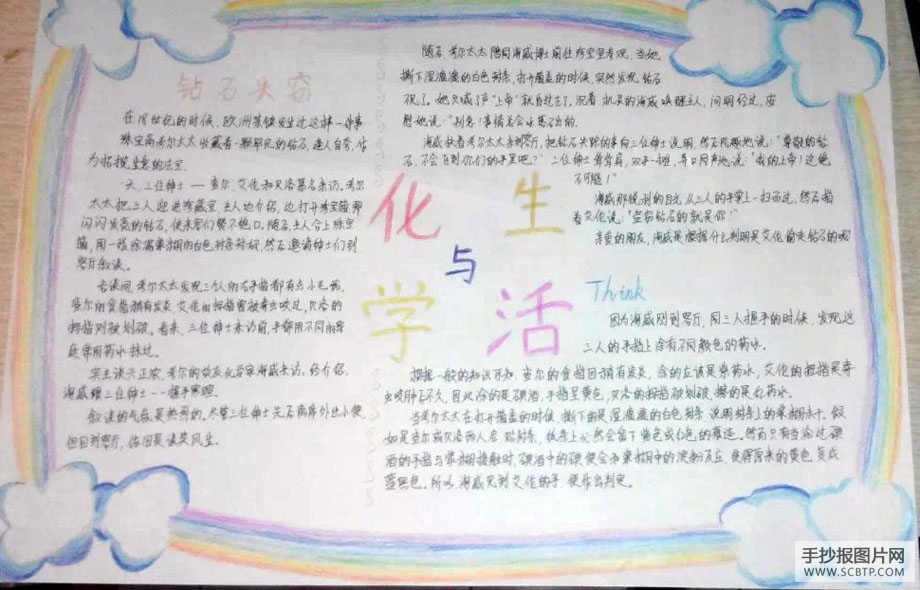 钻石失窃
在19世纪的时候，欧洲某镇发生过这样一件事
珠宝商考尔太太收藏着一颗罕见的钻石，逢人自夸，作
为招揽生意的法宝。
一天，三位绅士——查尔、艾伦和贝洛慕名来访。考尔
太太把三人迎进珍藏室，主人边介绍，边打开珠宝箱
闪闪发亮的钻石，使来客们赞不绝口。随后，主人合上珠宝
箱，用一张涂满浆糊的白色封条封好，然后邀请绅士们到
客厅叙谈。
言谈间，考尔太太发现三个人的右手指都有点小毛病，
查尔的食指稍有发炎，艾伦的拇指曾被毒虫咬过，贝洛的
拇指则被划破。看来，三位绅士来访前，手都用不同的家
庭常用药水抹过。
宾主谈兴正浓，考尔的朋友化学家海威来访，经介绍，
海威跟三位绅士一一握手寒暄。
叙谈的气氛是热烈的，尽管三位绅士先后离席外出小便，
但回到客厅，依旧是谈笑风生。
随后，考尔太太陪同海威博士前往珍宝室参观，当她
撕下湿漉漉的白色封条，打开箱盖的时候，突然发现，钻石
不见了。她只喊了声“上帝”就昏过去了。沉着、机灵的海威唤醒主人，问明经过，安
慰她说：“别急！事情总会水落石出的。
海威扶着考尔太太来到客厅，把钻石失踪的事向三位绅士说明，然后风趣地说：“尊敬的钻
石，不会飞到你们的手里吧？”三位绅士耸耸肩，双手一摊，异口同声地说：“我的上帝！这绝
不可能！”
海威那锐利的目光，从三人的手掌上一扫而过，然后指
着艾伦说：“窃钻石的就是你！”
亲爱的朋友，海威是根据什么判明是艾伦偷走钻石的呢
化
学
与
生
活
Think
因为海威刚到客厅，同三人握手的时候，发现这
三人的手指上涂有不同颜色的药水。
根据一般的知识可知，查尔的食指因稍有发炎，涂的应该是紫药水，艾伦的拇指是毒
虫咬肿而不久，因此涂的是碘酒，手指呈黄色，贝洛的拇指被划破，搽的是红药水。
当考尔太太在打开箱盖的时候，撕下的是湿漉漉的白色封条，说明封条上的浆糊未干。假
如是查尔或贝洛两人启贴封条，纸条上必然会留下紫色或红色的痕迹。然而只有当涂过碘
酒的手指与浆糊接触时，碘酒中的碘便会和浆糊中的淀粉反应，使得原来的黄色变成
蓝黑色。所以，海威见到艾伦的手，便作出判定。
手抄报图片网
WWW.SCBTP.COM